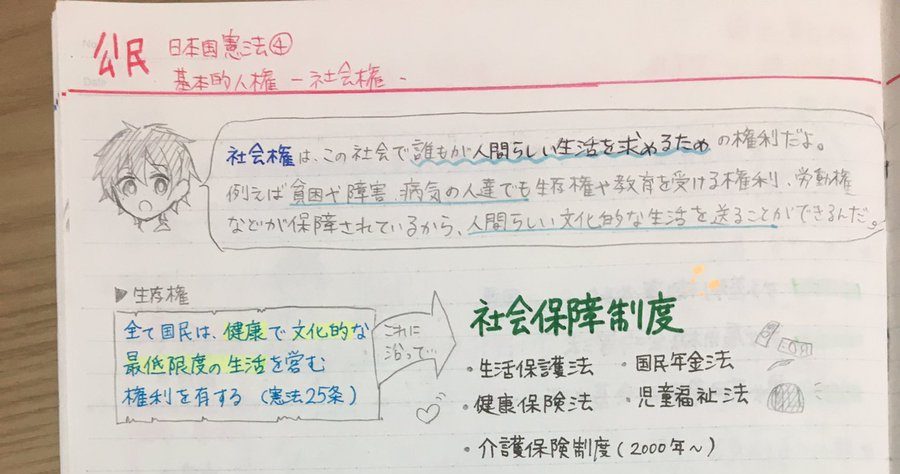 公民 日本国憲法④
基本的人権 － 社会権 -
社会権は、この社会で誰もが人間らしい生活を求めるための権利だよ。
例えば貧困や障害、病気の人達でも生存権や教育を受ける権利、労働権
などが保障されているから、人間らしい文化的な生活を送ることができるんだ。
▶生存権
全て国民は、健康で文化的な
最低限度の生活を営む
権利を有する（憲法25条）
これに
沿って…
社会保障制度
・生活保護法 ・国民年金法
・健康保険法 ・児童福祉法
・介護保険制度（2000年～）